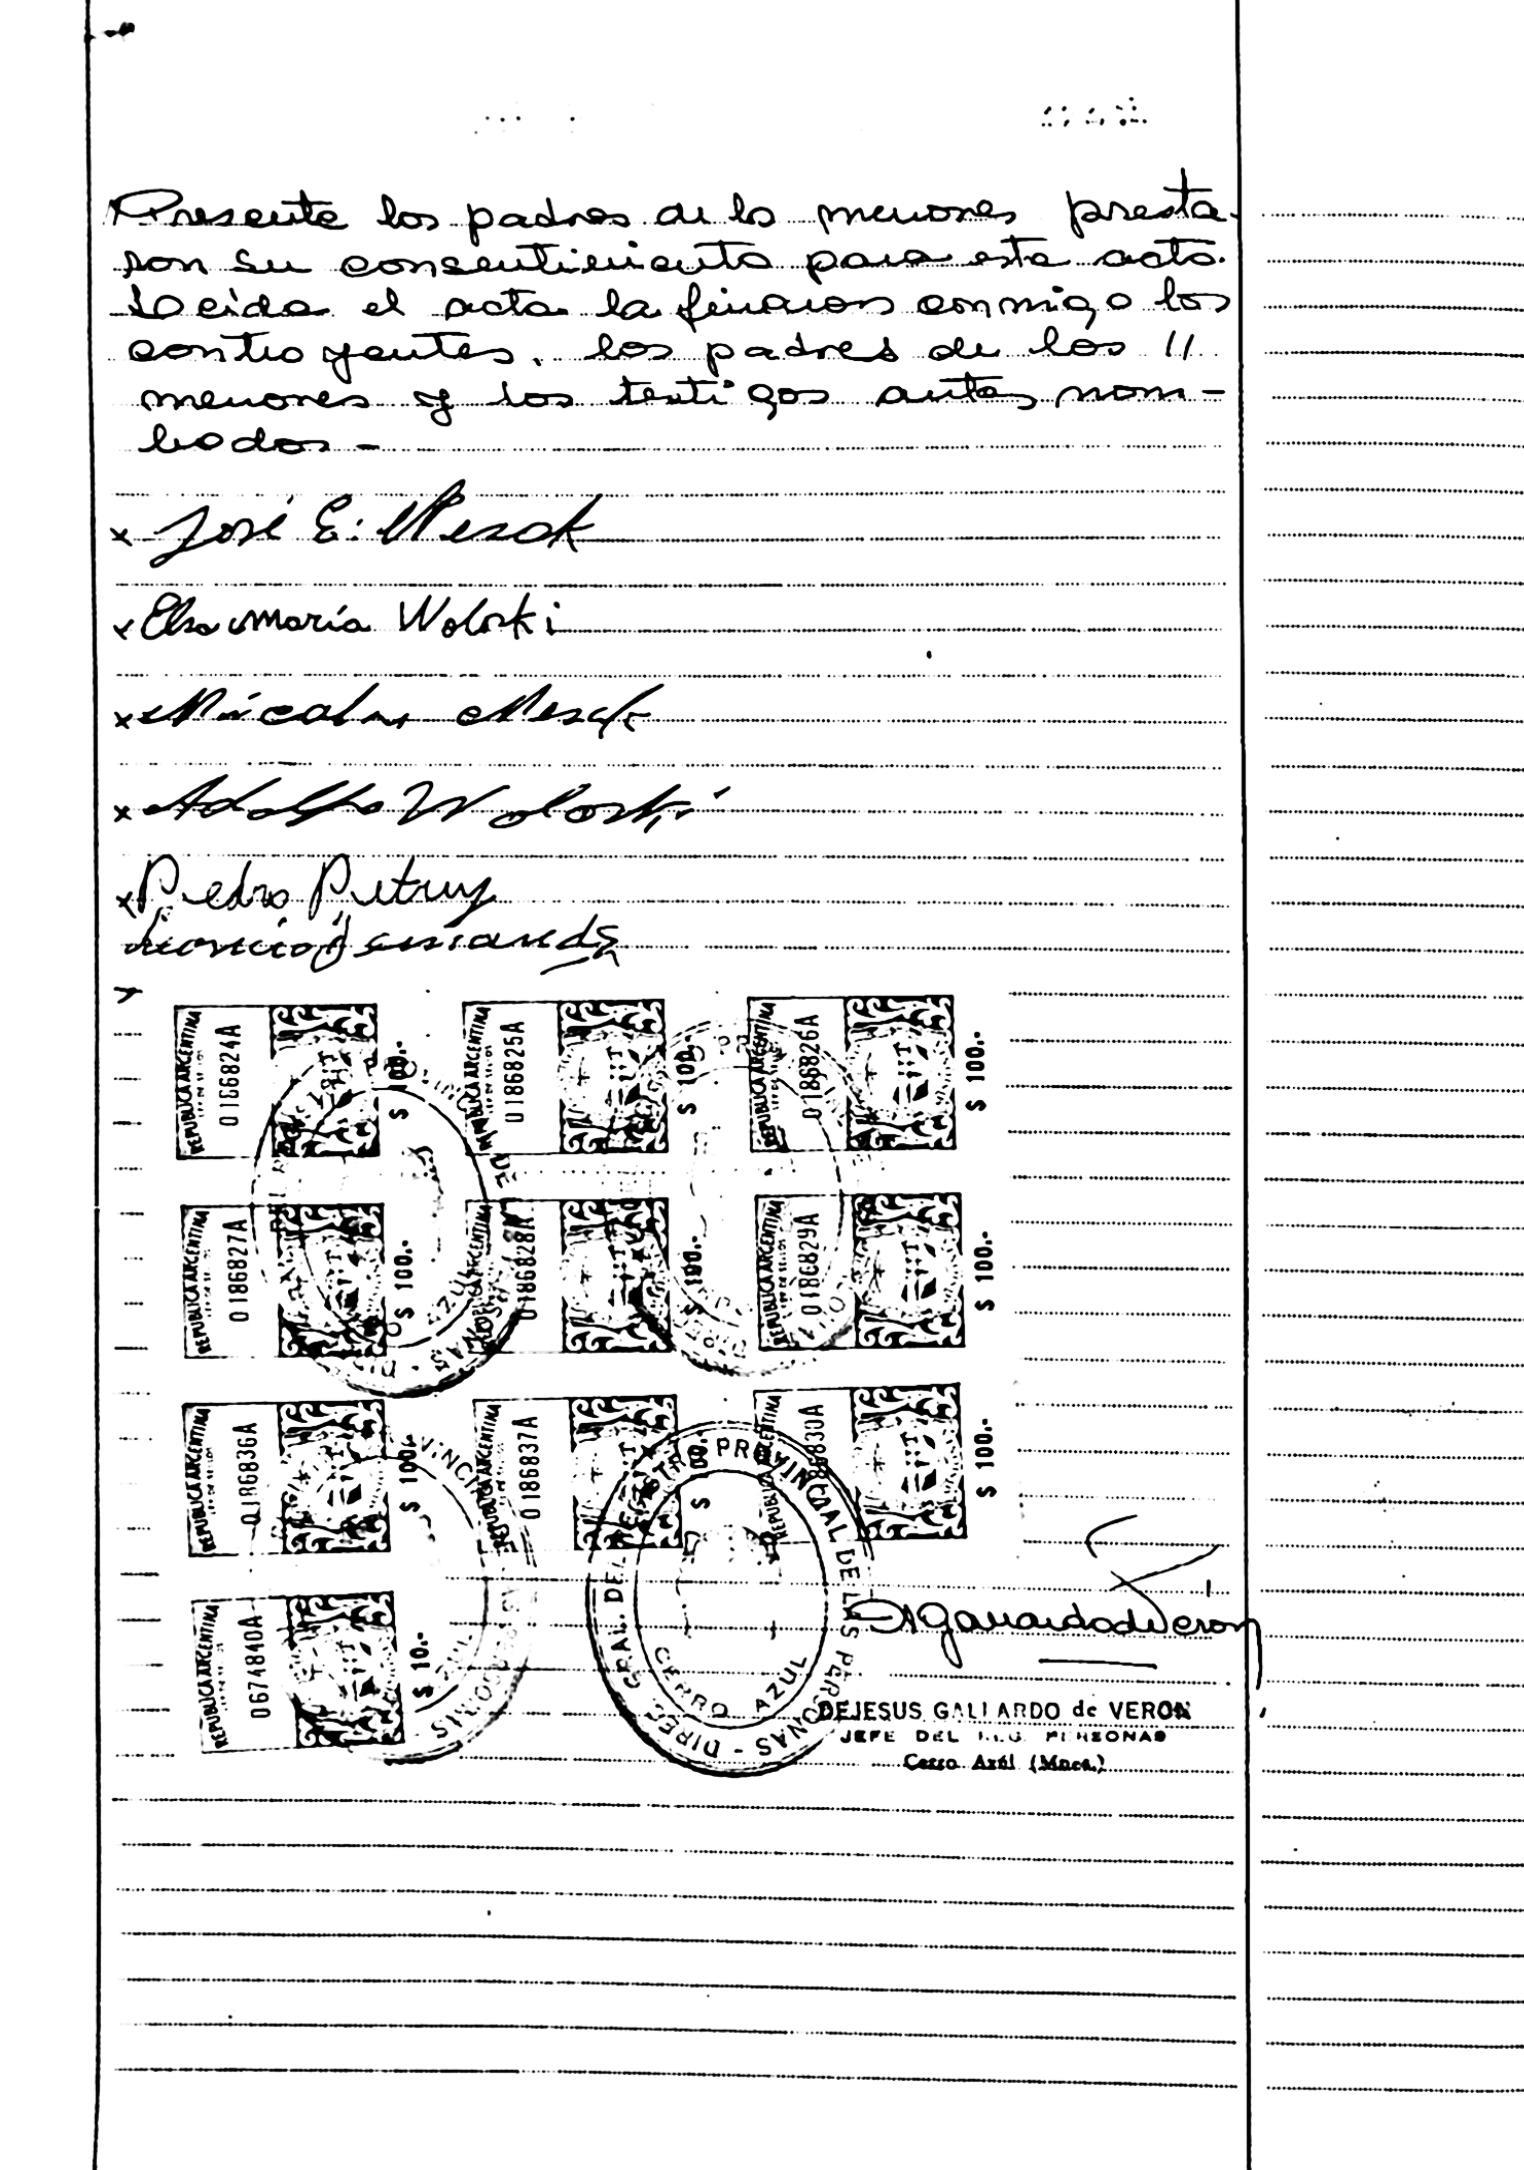 Presente los padres de los menores presta-
ron su consentimiento para este acto.
Leida el acta la firman conmigo los
contrayentes. los padres de los 11
menores y los testigos antes nom-
brados -
x José E. Mesak
x Elsa María Woloski
x Nicolas Mesak
x Adolfo Woloski
x Pedro Petruy
REPUBLICA ARGENTINA 0186824A $ 100.-
REPUBLICA ARGENTINA 0186825A $ 100.-
REPUBLICA ARGENTINA 0186826A $ 100.-
REPUBLICA ARGENTINA 0186827A $ 100.-
REPUBLICA ARGENTINA 0186828A $ 100.-
REPUBLICA ARGENTINA 0186829A $ 100.-
REPUBLICA ARGENTINA 0186836A $ 100.-
REPUBLICA ARGENTINA 0186837A $ 100.-
REPUBLICA ARGENTINA 86830A $ 100.-
REPUBLICA ARGENTINA 0674840A $ 10.-
GRAL. DEL REGISTRO PROVINCIAL DE LAS PERSONAS - DIREC.
CERRO AZUL
DEJESUS GALLARDO de VERON
JEFE DEL PERSONAS
Cerro Azul (Mnes.)